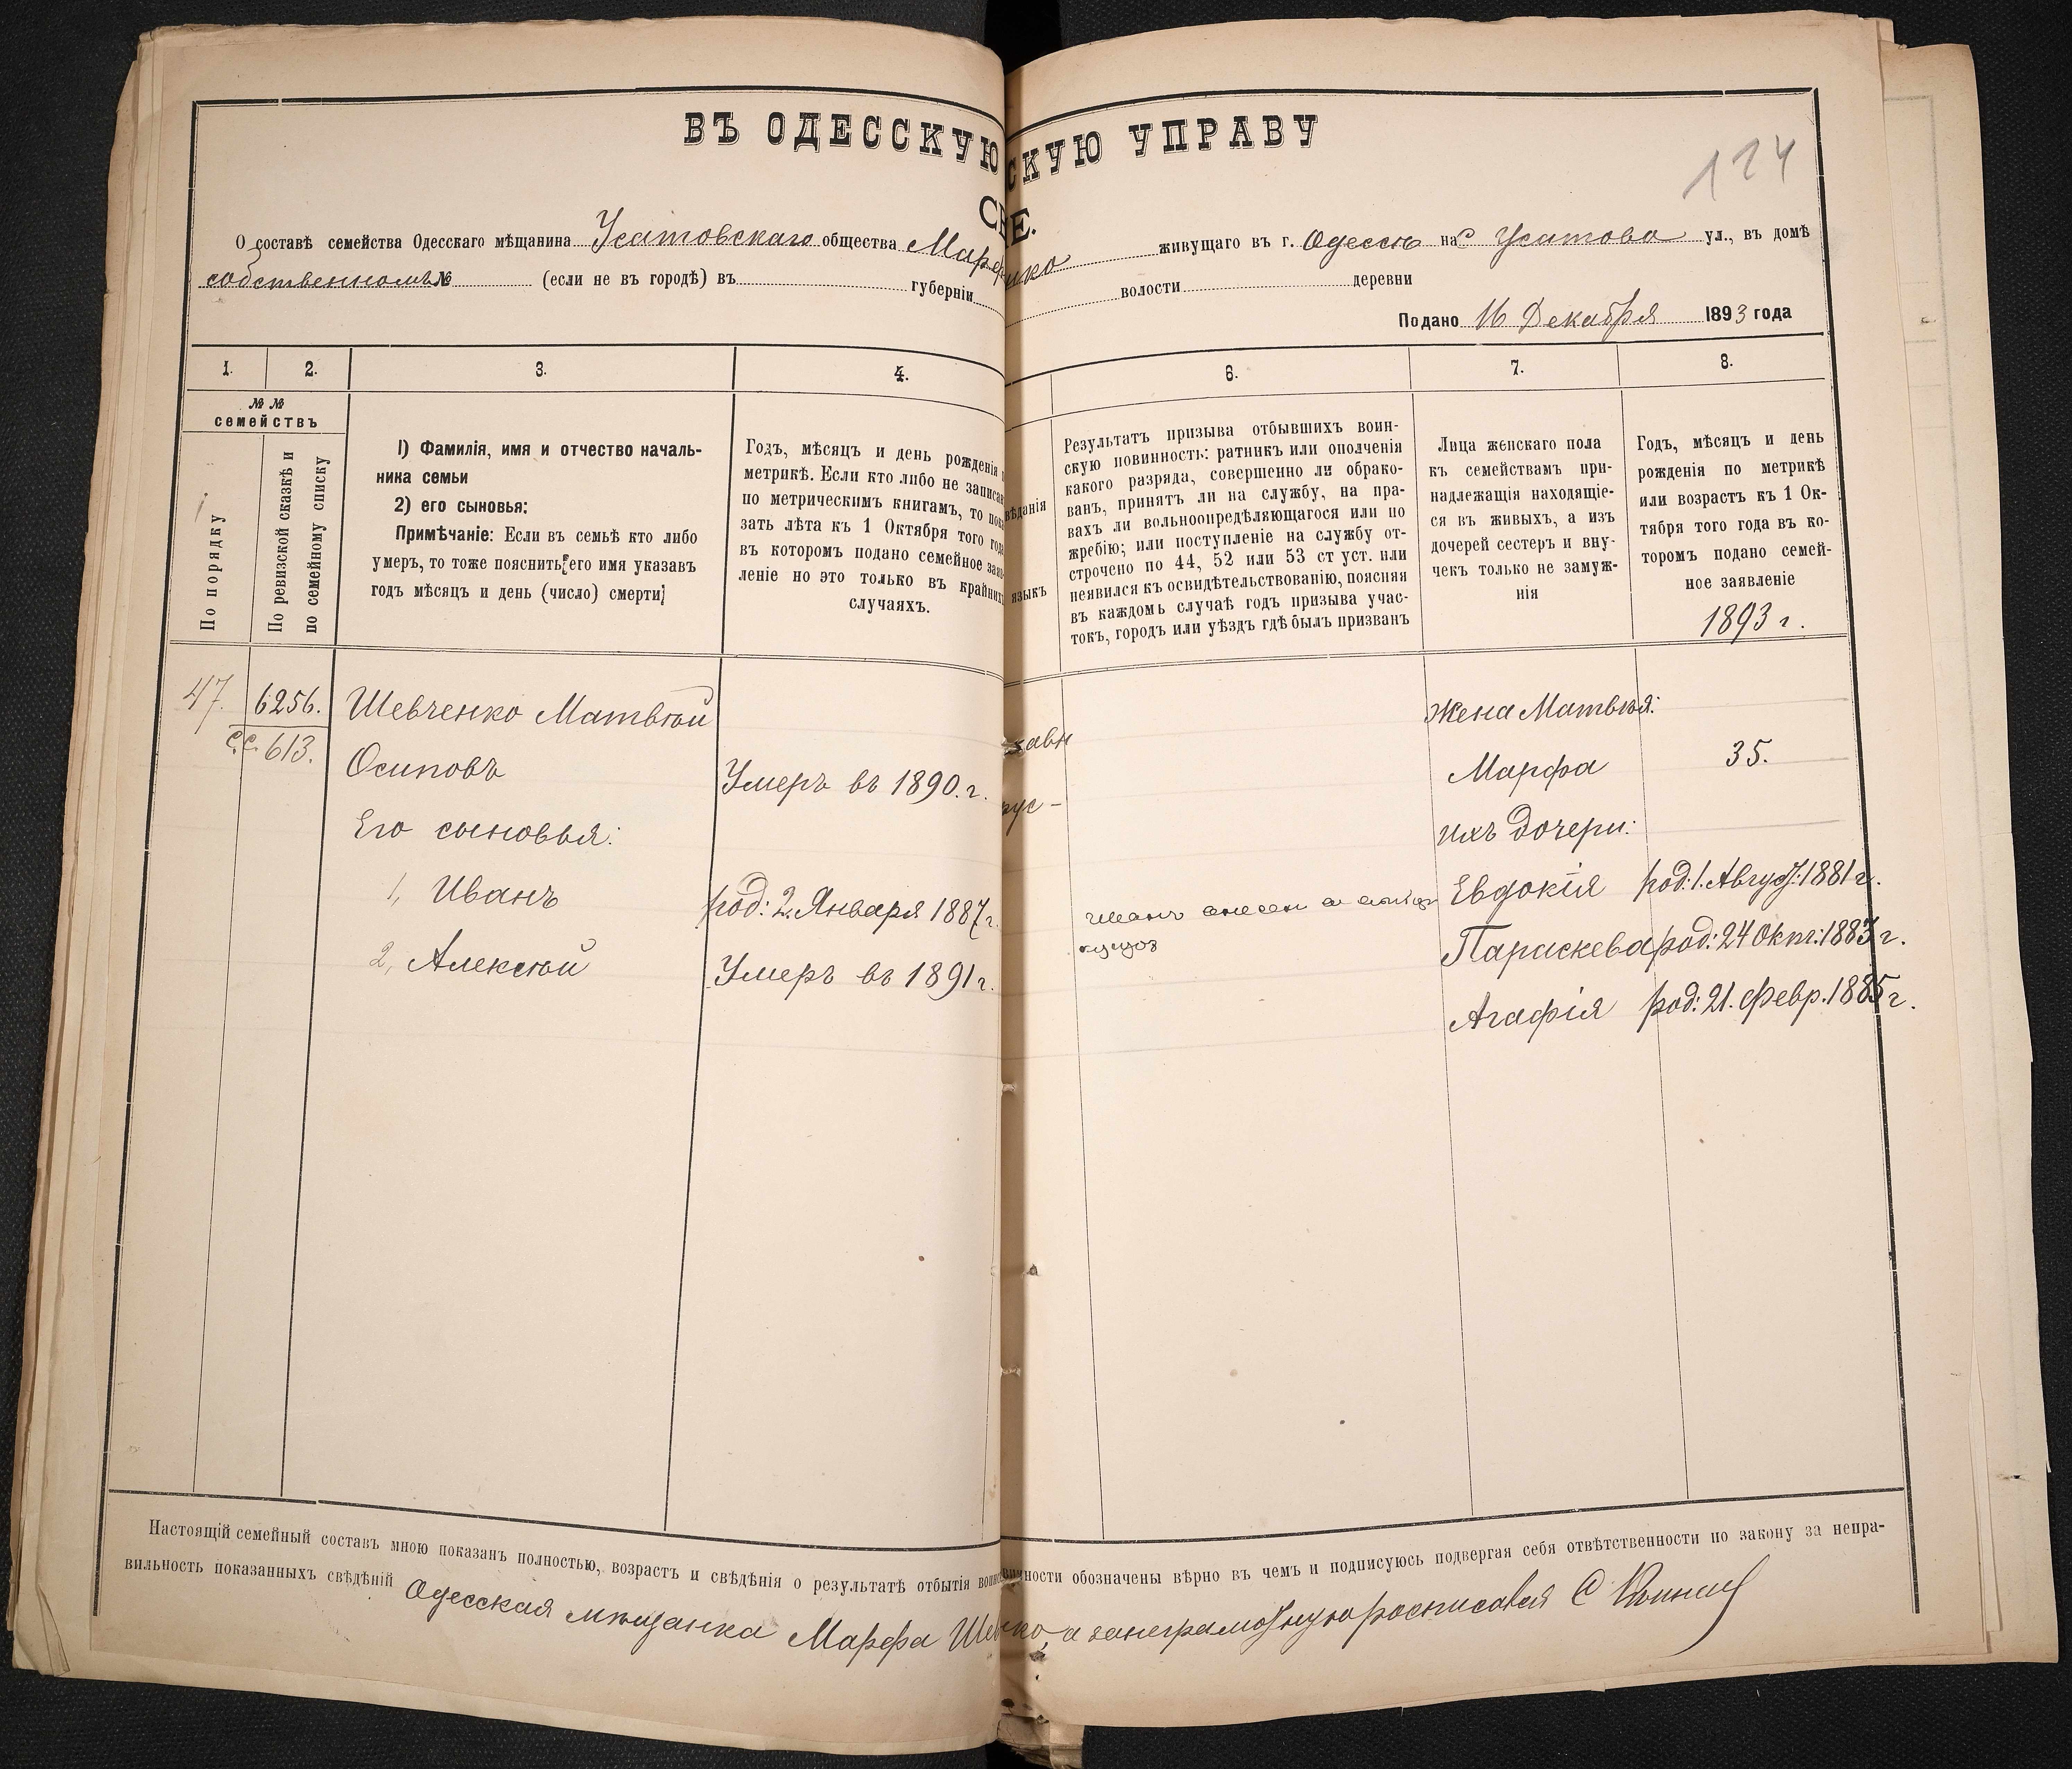 ВЪ ОДЕССКУЮ СКУЮ УПРАВУ
124
О составѣ семейства Одесскаго мѣщанина Усатовскаго общества живущаго въ г. Одессѣ на с Усатова ул., въ домѣ
собственномъ № (если не въ городѣ) въ губерніи волости деревни
Подано 16 Декабря 1893 года
1. 2. 3. 4. 6. 7. 8.
№ №
семействъ
По порядку
По ревизской сказкѣ и
по семейному списку
1) Фамилія, имя и отчество началь-
ника семьи
2) его сыновья:
Примѣчаніе: Если въ семьѣ кто либо
умеръ, то тоже пояснить его имя указавъ
годъ мѣсяцъ и день (число) смерти;
Годъ, мѣсяцъ и день рожденія
метрикѣ. Если кто либо не записа
по метрическимъ книгамъ, то пока
зать лѣта къ 1 Октября того года
въ которомъ подано семейное зая-
леніе но это только въ крайнихъ
случаяхъ.
вѣданія
языкъ
Результатъ призыва отбывшихъ воин-
скую повинность: ратникъ или ополченія
какого разряда, совершенно ли обрако-
ванъ, принятъ ли на службу, на пра-
вахъ ли вольноопредѣляющагося или по
жребію; или поступленіе на службу от-
строчено по 44, 52 или 53 ст уст. или
неявился къ освидѣтельствованію, поясняя
въ каждомъ случаѣ годъ призыва учас-
токъ, городъ или уѣздъ гдѣ былъ призванъ
Лица женскаго пола
къ семействамъ при-
надлежащія находящіе-
ся въ живыхъ, а изъ
дочерей сестеръ и вну-
чекъ только не замуж-
нія
Годъ, мѣсяцъ и день
рожденія по метрикѣ
или возрастъ къ 1 Ок-
тября того года въ ко-
торомъ подано семей-
ное заявленіе
1893 г.
47. 6256. Шевченко Матвѣй Жена Матвѣя:
с.с. 613. Осиповъ Умеръ въ 1890.г. Марфа 35.
Его сыновья: ихъ дочери:
1, Иванъ род: 2. Января 1887 г. Евдокія род: 1. Август: 1881 г.
2, Алексѣй Умеръ въ 1891 г. Параскева род: 24 Окт: 1883 г.
Агафія род: 21. Февр. 1885 г.
Настоящій семейный составъ мною показанъ полностью, возрастъ и свѣдѣнія о результатѣ отбытія воинс винности обозначены вѣрно въ чемъ и подписуюсь подвергая себя отвѣтственности по закону за непра-
вильность показанныхъ свѣдѣній Одесская мѣщанка Марфа Шев нко, а за неграмотную росписался С